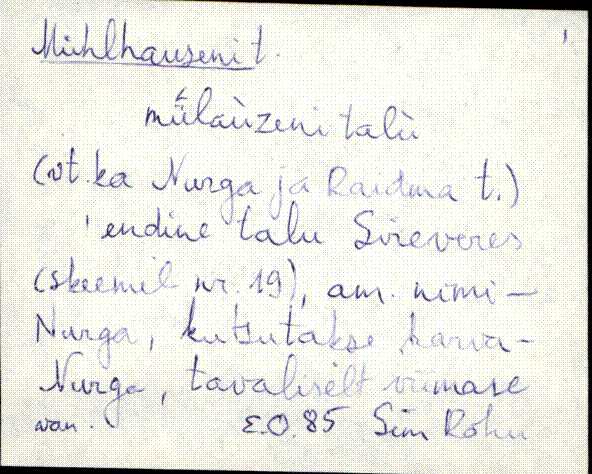 Mühlhauseni t.
mǖlaùzeni talù
(vt. ka Nurga ja Raidma t.)
'endine talu Sireveres
(skeemil nr. 19), am. nimi –
Nurga, kutsutakse harva –
Nurga, tavaliselt viimase
E.O. 85 Sim Rohu